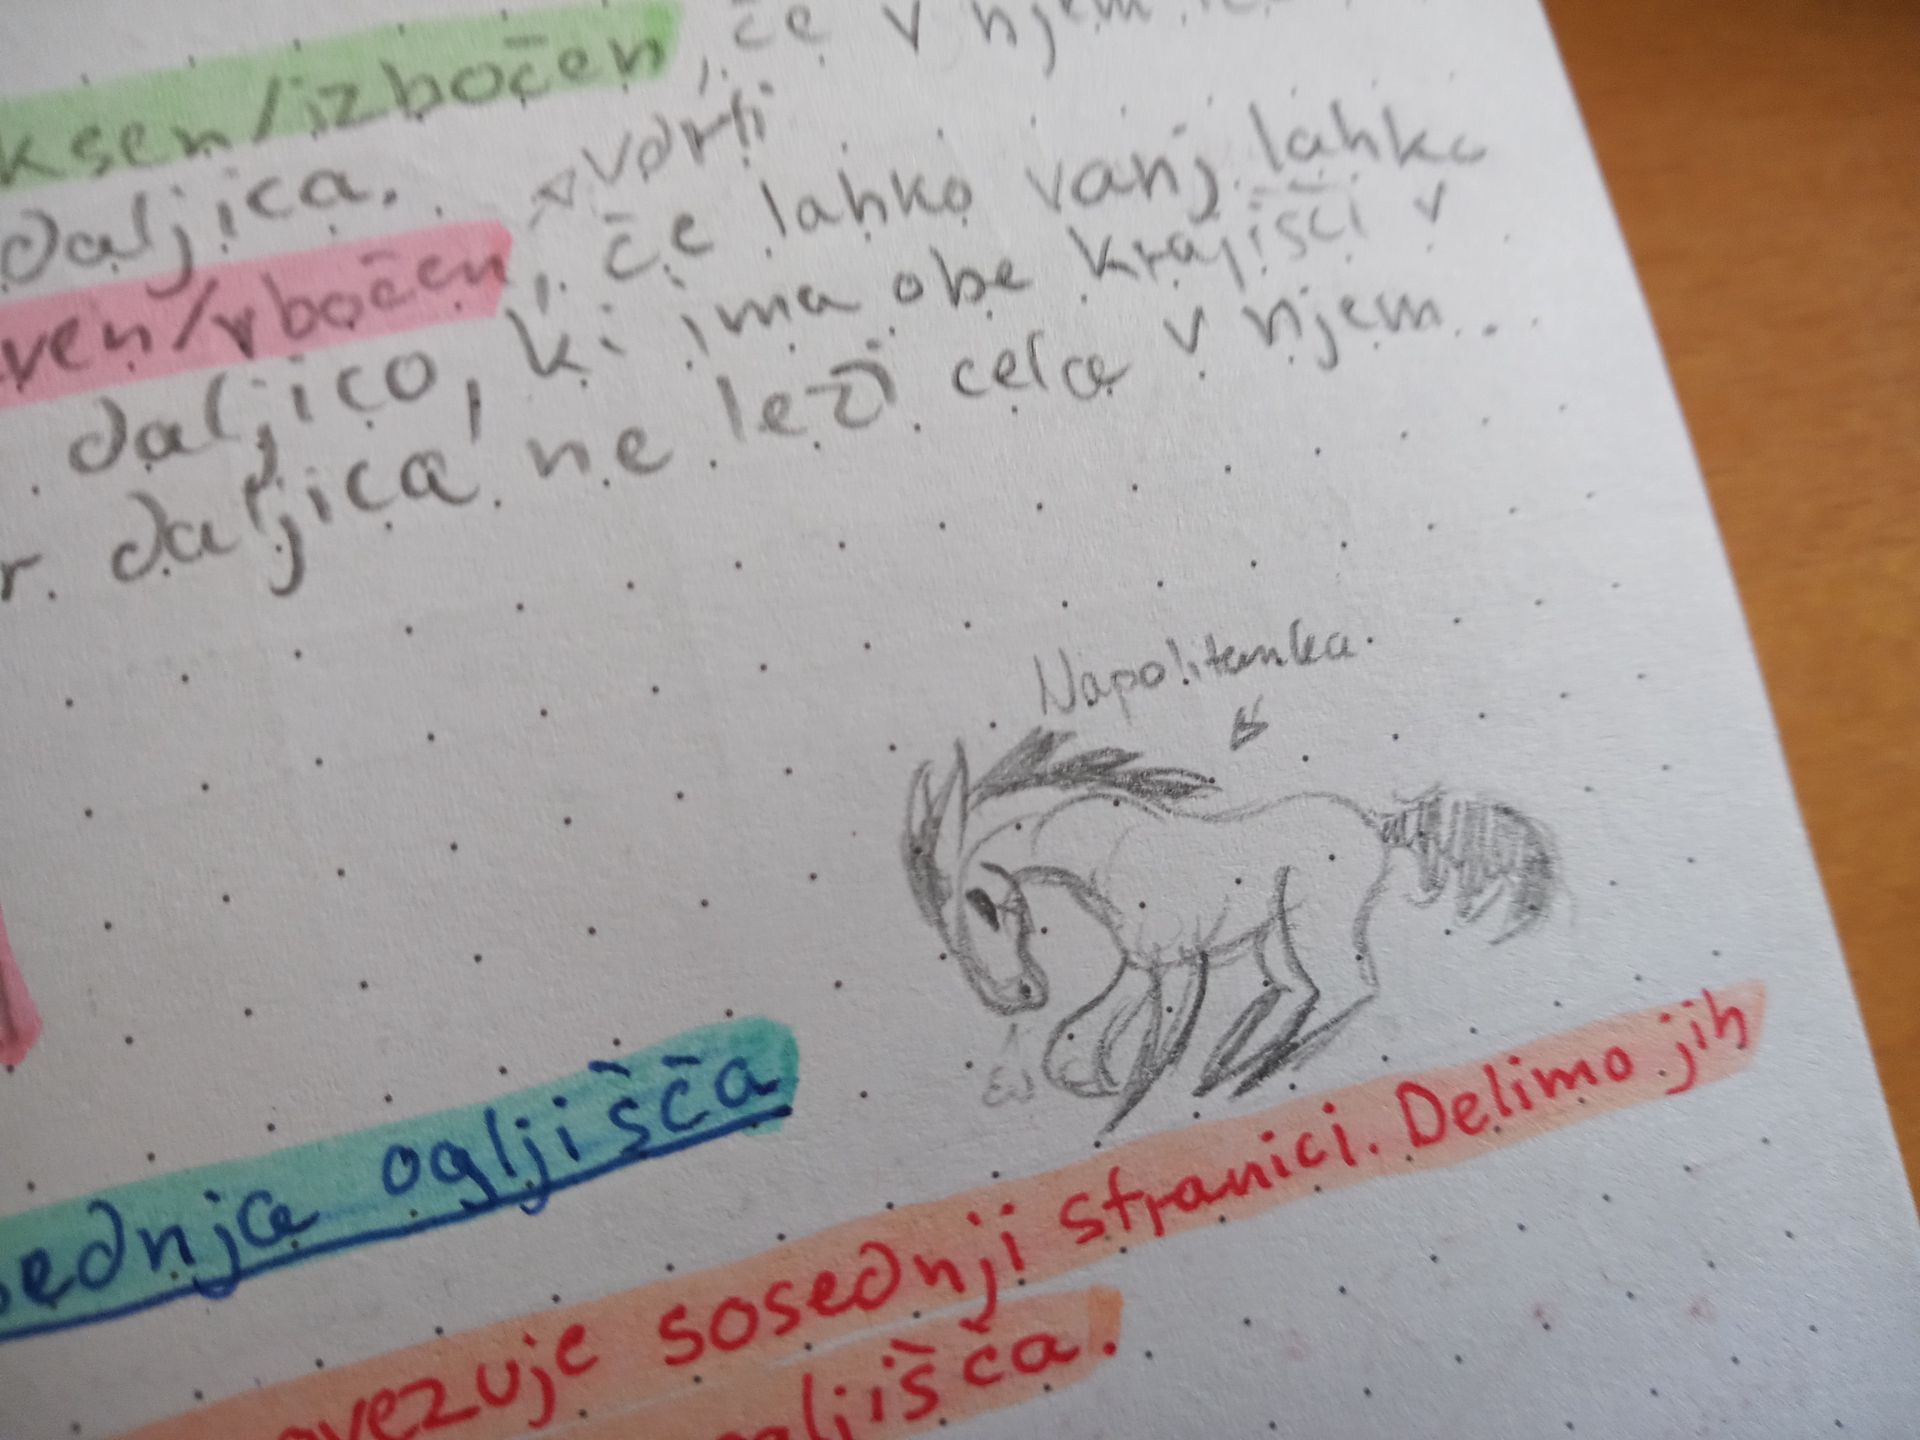 ksen/izbočen, če v njem le
daljica.
vdrti
ven/vbočen, če lahko vanj lahko
daljico, ki ima obe krajišči v
r. daljica ne leži cela v njem..
Napolitanka.
ednja ogljišča
ovezuje sosednji stranici. Delimo jih
ogljišča.